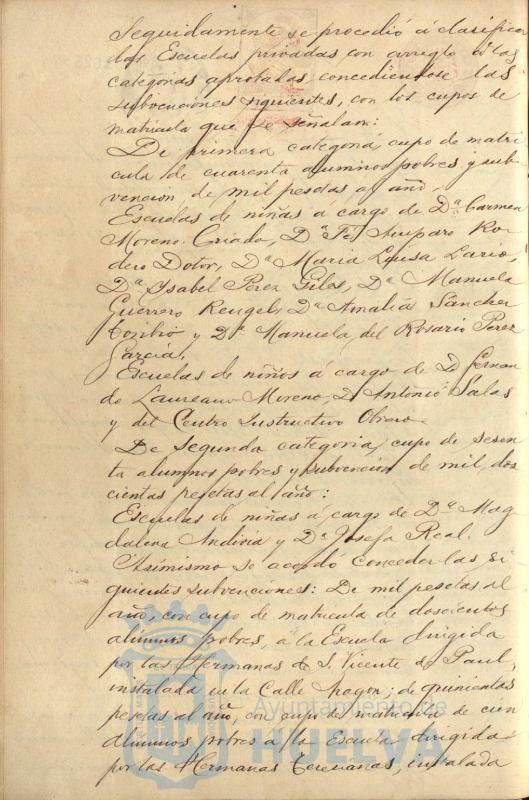 Seguidamente se procedió á clasificar
las Escuelas privadas con arreglo á las
categorias aprobadas concediendose las
subvenciones siguientes, con los cupos de
matricula que se señalan:
De primera categoria, cupo de matri
cula de cuarenta alumnos pobres y sub-
vencion de mil pesetas al año,
Escuelas de niñas á cargo de Dª Carmen
Moreno Criado, Dª Fé Amparo Ro
dero Dotor, Dª Maria Luisa Lario,
Dª Ysabel Perez Giles, Dª Manuela
Guerrero Rengel, Dª Amalia Sánchez
Toribio y Dª Manuela del Rosario Perez
Garcia,
Escuelas de niños á cargo de D Fernan
do Laureano Moreno, D Antonio Salas
y del Centro Instructivo Obrero.
De Segunda categoria, cupo de sesen
ta alumnos pobres y subvencion de mil, dos
cientas pesetas al año:
Escuelas de niñas á cargo de Dª Mag
dalena Andivia y Dª Josefa Real.
Asimismo se acordó conceder las si
guientes subvenciones: De mil pesetas al
año, con cupo de matricula de doscientos
alumnos pobres, á la Escuela dirigida
por las Hermanas de S. Vicente de Paul,
instalada en la Calle Aragon; de quinientas
pesetas al año, con cupo de matricula de cien
alumnos pobres a la Escuela dirigida
por las Hermanas Teresianas, instalada
Ayuntamiento de
HUELVA